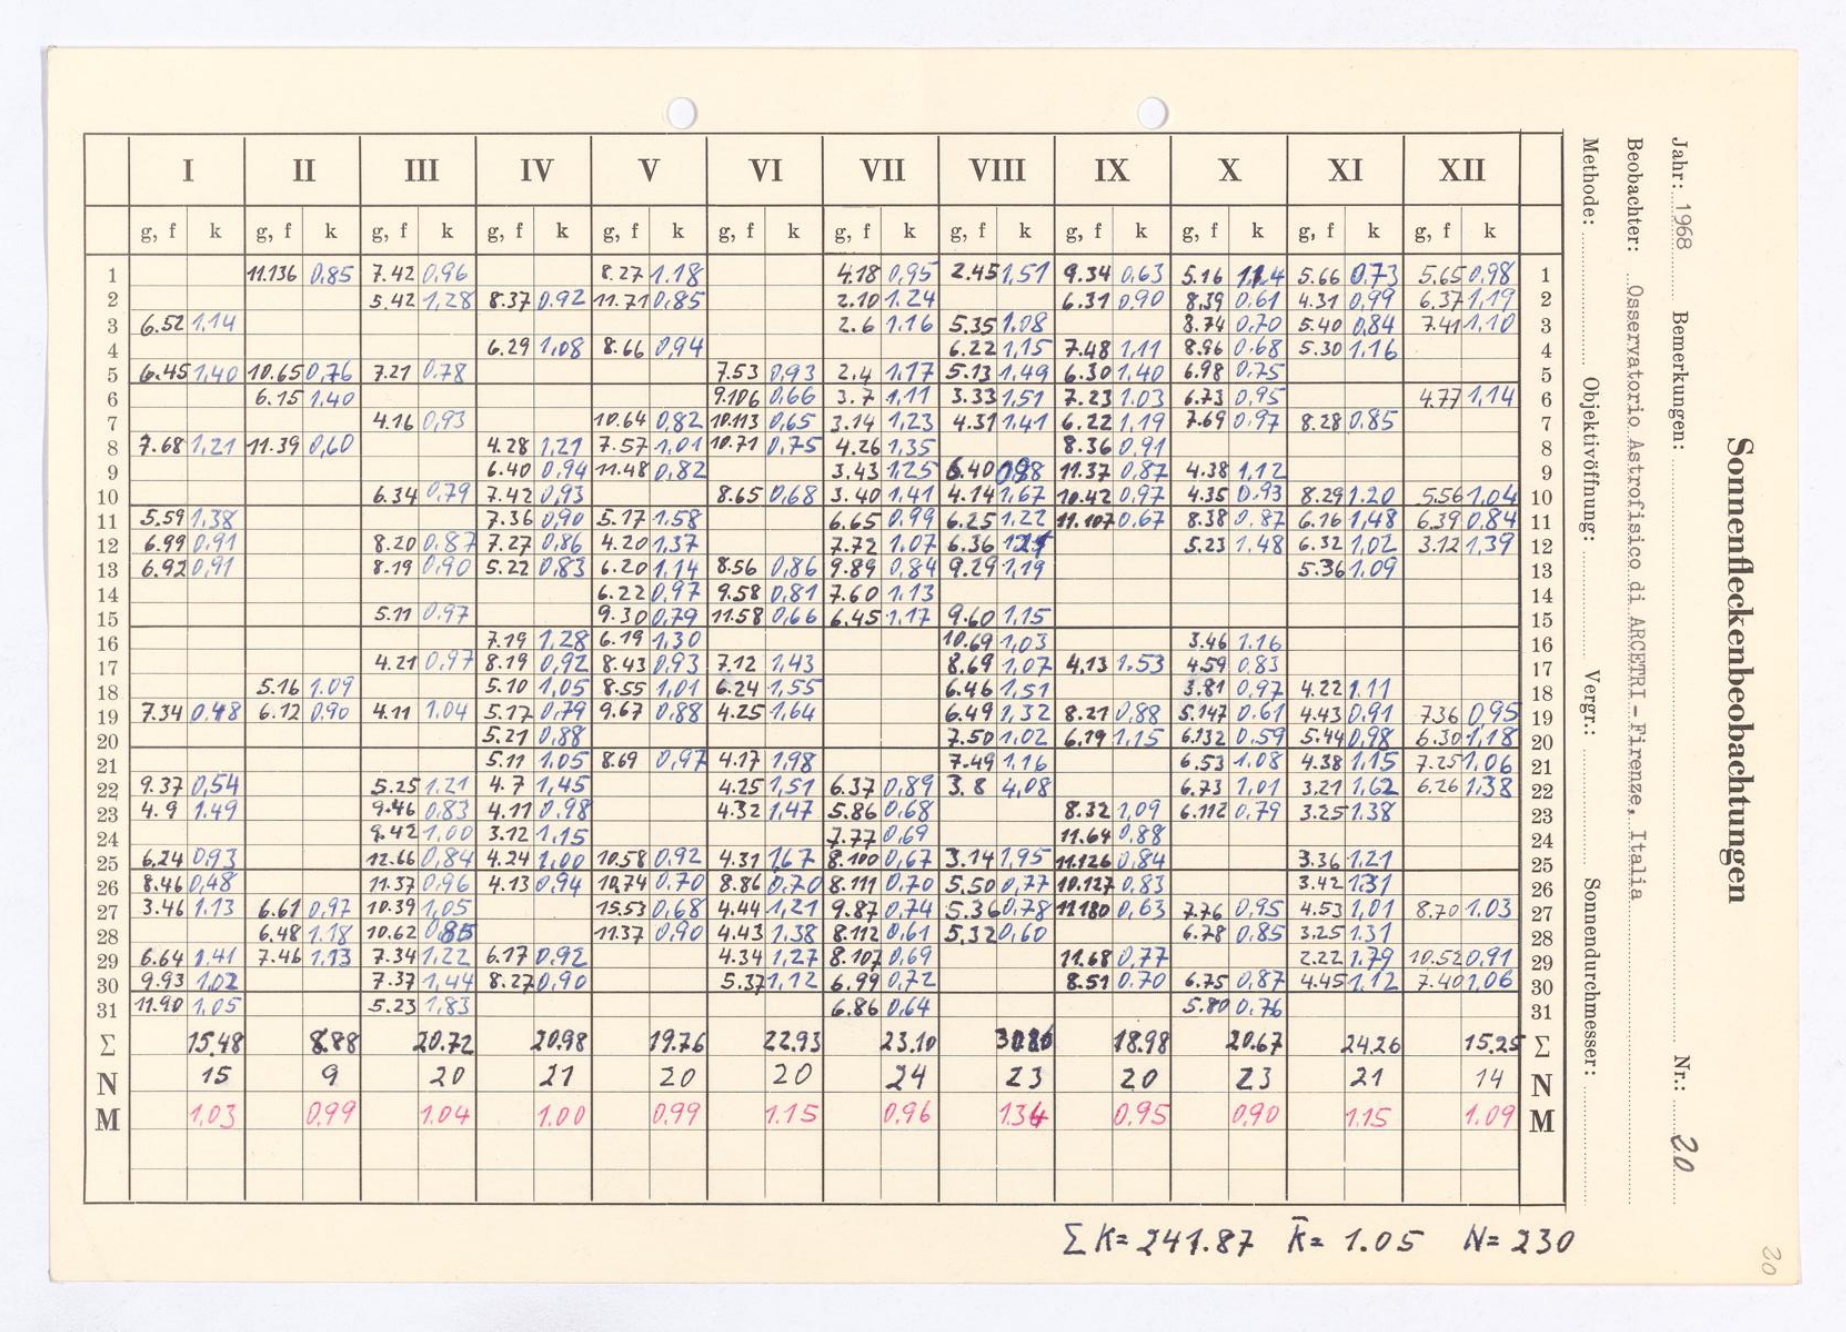 I II III IV V VI VII VIII IX X XI XII
g, f k g, f k g, f k g, f k g, f k g, f k g, f k g, f k g, f k g, f k g, f k g, f k
1 11.136 0,85 7.42 0,96 8.27 1.18 4.18 0,95 2.45 1,51 9.34 0,63 5.16 1.14 5.66 0,73 5.65 0,98 1
2 5.42 1,28 8.37 0.92 11.71 0,85 2.10 1.24 6.31 0,90 8.39 0.61 4.31 0,99 6.37 1,19 2
3 6.52 1,14 2.6 1.16 5.35 1.08 8.74 0,70 5.40 0,84 7.41 1,10 3
4 6.29 1,08 8.66 0,94 6.22 1,15 7.48 1,11 8.96 0.68 5.30 1.16 4
5 6.45 1,40 10.65 0,76 7.21 0.78 7.53 0,93 2.4 1,17 5.13 1,49 6.30 1.40 6.98 0.75 5
6 6.15 1.40 9.106 0,66 3.7 1,11 3.33 1,51 7.23 1.03 6.73 0,95 4.77 1,14 6
7 4.16 0,93 10.64 0,82 10.113 0,65 3.14 1,23 4.31 1,41 6.22 1,19 7.69 0,97 8.28 0,85 7
8 7.68 1,21 11.39 0,60 4.28 1,21 7.57 1,01 10.71 0,75 4.26 1,35 8.36 0,91 8
9 6.40 0,94 11.48 0,82 3.43 1.25 6.40 0,98 11.37 0,87 4.38 1,12 9
10 6.34 0,79 7.42 0,93 8.65 0,68 3.40 1,41 4.14 1,67 10.42 0,97 4.35 0.93 8.29 1.20 5.56 1.04 10
11 5.59 1,38 7.36 0,90 5.17 1.58 6.65 0.99 6.25 1,22 11.107 0,67 8.38 0,87 6.16 1,48 6.39 0,84 11
12 6.99 0,91 8.20 0,87 7.27 0,86 4.20 1,37 7.72 1.07 6.36 5.23 1.48 6.32 1,02 3.12 1,39 12
13 6.92 0,91 8.19 0,90 5.22 0,83 6.20 1,14 8.56 0,86 9.89 0,84 9.29 1,19 5.36 1.09 13
14 6.22 0,97 9.58 0,81 7.60 1.13 14
15 5.11 0.97 9.30 0,79 11.58 0,66 6.45 1.17 9.60 1,15 15
16 7.19 1,28 6.19 1,30 10.69 1,03 3.46 1.16 16
17 4.21 0,97 8.19 0,92 8.43 0,93 7.12 1,43 8.69 1,07 4,13 1.53 4.59 0,83 17
18 5.16 1.09 5.10 1,05 8.55 1,01 6.24 1,55 6.46 1,51 3.81 0,97 4.22 1.11 18
19 7.34 0.48 6.12 0,90 4.11 1.04 5.17 0,79 9.67 0,88 4.25 1,64 6.49 1,32 8.21 0,88 5.147 0.61 4.43 0,91 7.36 0,95 19
20 5.21 0,88 7.50 1,02 6.19 1,15 6.132 0,59 5.44 0,98 6.30 1,18 20
21 5.11 1.05 8.69 0,97 4.17 1,98 7.49 1,16 6.53 1.08 4.38 1,15 7.25 1,06 21
22 9.37 0,54 5.25 1.21 4.7 1,45 4.25 1,51 6.37 0,89 3.8 4,08 6.73 1,01 3,21 1,62 6.26 1,38 22
23 4.9 1.49 9.46 0,83 4.11 0.98 4.32 1,47 5.86 0,68 8.32 1,09 6.112 0,79 3.25 1.38 23
24 9.42 1.00 3.12 1,15 7.77 0,69 11.64 0,88 24
25 6,24 0,93 12.66 0,84 4.24 1,00 10.58 0,92 4.31 1,67 8.100 0,67 3.14 1,95 11.126 0,84 3.36 1.21 25
26 8.46 0,48 11.37 0,96 4.13 0,94 10,74 0.70 8.86 0,70 8.111 0,70 5.50 0,77 10.127 0,83 3.42 1.31 26
27 3.46 1.13 6.61 0,97 10.39 1,05 15.53 0,68 4.44 1,21 9.87 0,74 5.36 0,78 11.180 0,63 7.76 0,95 4.53 1,01 8.70 1.03 27
28 6.48 1.18 10.62 0,85 11.37 0,90 4.43 1.38 8.112 0,61 5,32 0,60 6.78 0,85 3.25 1.31 28
29 6.64 1.41 7.46 1,13 7.34 1,22 6.17 0.92 4.34 1,27 8.107 0,69 11.68 0,77 2.22 1,79 10.52 0.91 29
30 9.93 1,02 7.37 1,44 8.27 0,90 5.37 1,12 6.99 0,72 8.51 0.70 6.75 0,87 4.45 1.12 7.40 1,06 30
31 11.90 1,05 5.23 1,83 6.86 0,64 5.80 0.76 31
Σ 15.48 8.88 20.72 20.98 19.76 22.93 23.10 18.98 20.67 24.26 15.25 Σ
N 15 9 20 21 20 20 24 23 20 23 21 14 N
M 1,03 0.99 1.04 1.00 0.99 1.15 0,96 1.34 0.95 0,90 1.15 1.09 M
Σ K = 241.87 k̄ = 1.05 N = 230
Sonnenfleckenbeobachtungen
Jahr: 1968 Bemerkungen: Nr.: 20
Beobachter: Osservatorio Astrofisico di ARCETRI - Firenze, Italia
Methode: Objektivöffnung: Vergr.: Sonnendurchmesser:
20